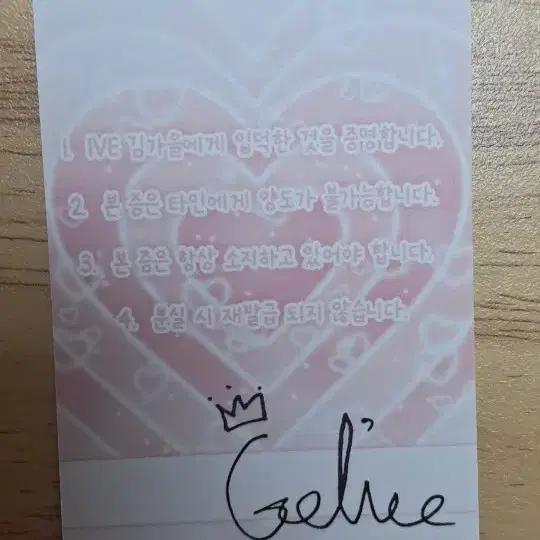 1. IVE 김가을에게 입덕한 것을 증명합니다.
2. 본 증은 타인에게 양도가 불가능합니다.
3. 본 증은 항상 소지하고 있어야 합니다.
4. 분실 시 재발급 되지 않습니다.